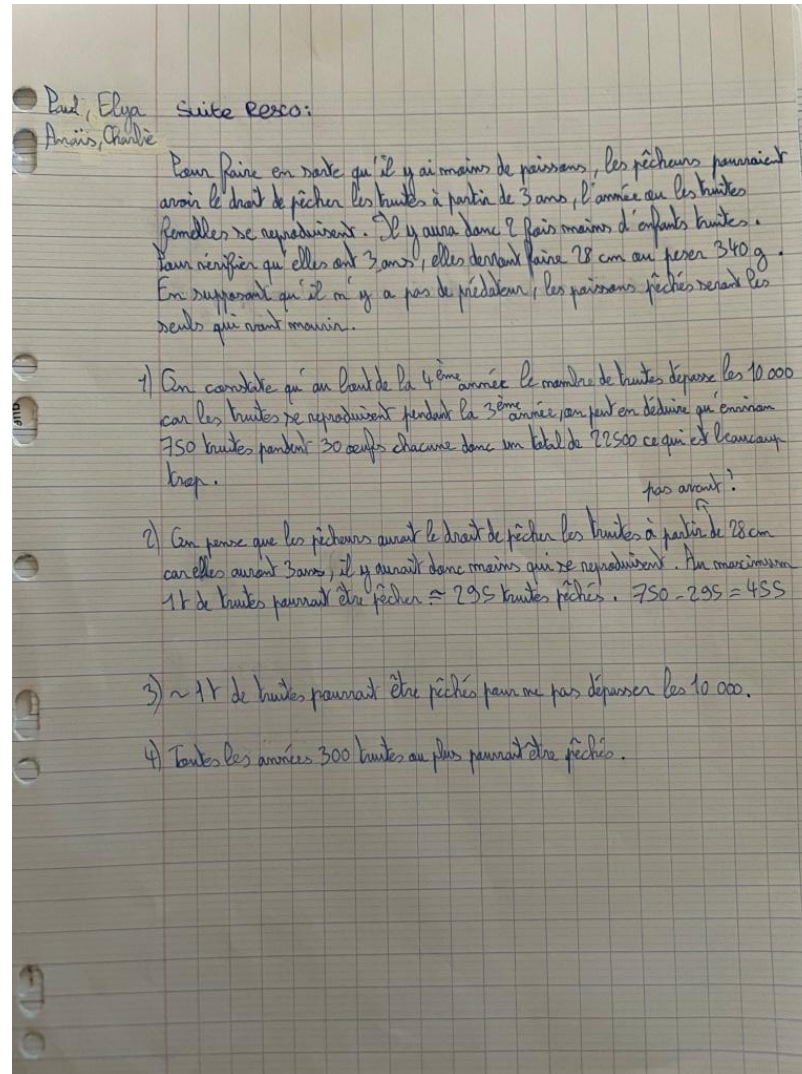 Paul, Elya Suite Resco:
Anaïs, Charlie
Pour faire en sorte qu'il y ai moins de poissons, les pêcheurs pourraient
avoir le droit de pêcher les truites à partir de 3 ans, l'année ou les truites
femelles se reproduisent. Il y aura donc 2 fois moins d'enfants truites.
Pour vérifier qu'elles ont 3 ans, elles devront faire 28 cm ou peser 340 g.
En supposant qu'il n'y a pas de prédateur, les poissons pêchés seront les
seuls qui vont mourir.
1) On constate qu'au bout de la 4ème année le nombre de truites dépasse les 10 000
car les truites se reproduisent pendant la 3ème année, on peut en déduire qu'environ
750 truites pondent 30 oeufs chacune donc un total de 22500 ce qui est beaucoup
trop.
pas avant!
2) On pense que les pêcheurs aurait le droit de pêcher les truites à partir de 28 cm
car elles auront 3 ans, il y aurait donc moins qui se reproduisent. Au maximum
1t de truites pourrait être pêcher ≈ 295 truites pêchés. 750 - 295 = 455
3) ~ 1t de truites pourrait être pêchés pour ne pas dépasser les 10 000.
4) Toutes les années 300 truites au plus pourrait être pêchés.